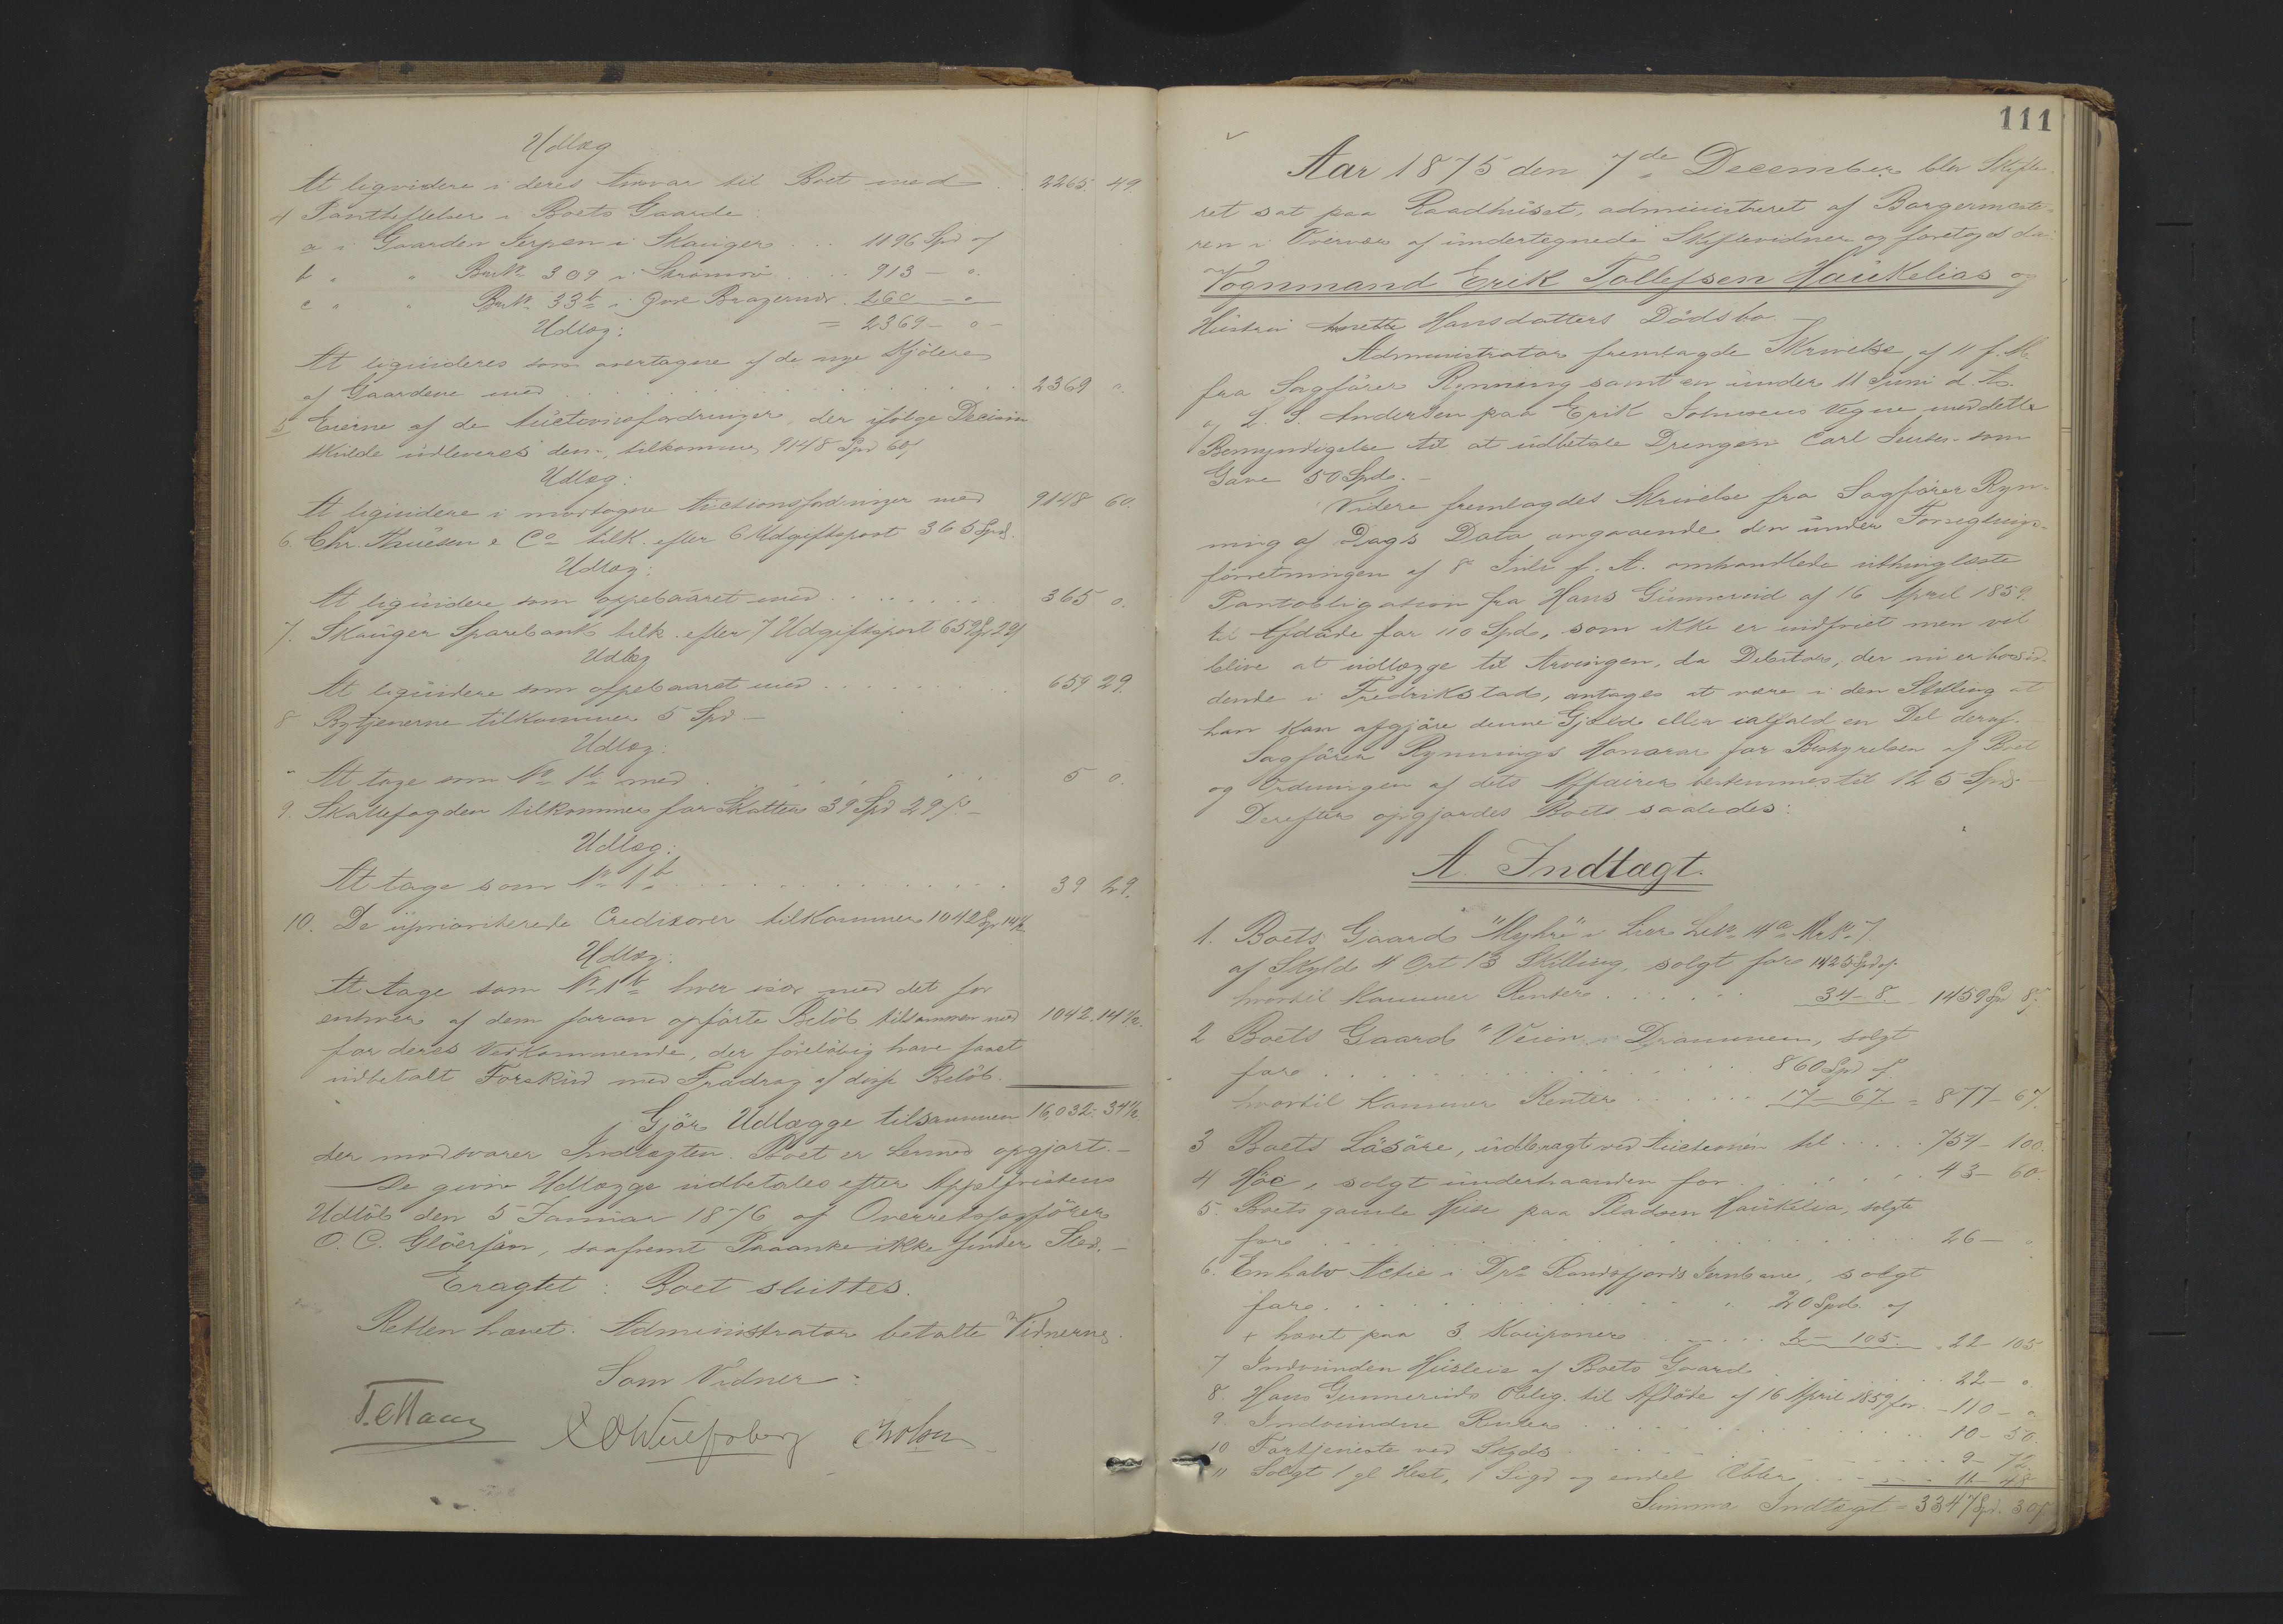 Udlæg
At ligvidere i deres Ansvar til Boet med . 2265. 49.
4 Pantheftelser i Boets Gaarde
a i Gaarden Jerpen i Skauger ... 1196 Spd ɟ
b " " BrN: 309 i Strømsø .... 913 - ɔ.
c " " BrN: 33b i Øvre Bragernæs. 260 - ɔ
Udlæg: = 2369 - ɔ -
At ligvideres som overtagne af de nye Kjøbere
af Gaardene med . . . . . . . . . . 2369 ɔ.
5 Eierne af de Auctionsfordringer, der ifølge Decision
skulde udleveres dem, tilkommer 9148 Spd 60ß
Udlæg:
At ligvidere i modtagne Auctionsfordringer med 9148 60.
6. Chr. Thuesen & Co tilk. efter 6 Udgiftspost 365 Spd.
Udlæg:
At ligvidere som oppebaaret med . . . . . . . 365 ɔ.
7. Skauger Sparebank tilk. efter 7 Udgiftspost 659 Sp 29ß
Udlæg
At ligvidere som oppebaaret med . . . . . . . 659 29.
8 Bytjenerne tilkommer 5 Spd -
Udlæg:
At tage som No 1b med . . . . . . . 5 ɔ.
9. Skattefogden tilkommer for Skatter 39 Spd 29 ß. -
Udlæg:
At tage som No 1b . . . . . . . . . . 39 29.
10. De uprioriterede Creditorer tilkommer 1042 Sp 14½
Udlæg:
At tage som No 1b hver især med det for
enhver af dem foran opførte Beløb tilsammen med 1042. 14½.
for deres Vedkommende, der foreløbig have faaet
udbetalt Forskud med Fradrag af disse Beløb.
Gjør Udlægge tilsammen 16,032: 34½
der modsvarer Indtægten. Boet er hermed opgjort. -
De givne Udlægge udbetales efter Appelfristens
Udløb den 5 Januar 1876 af Overretssagfører
O. C. Gløersen, saafremt Paaanke ikke finder Sted. -
Eragtet: Boet sluttes.
Retten hævet. Administrator betalte Vidnerne.
Som Vidner:
111
Aar 1875 den 7de December blev Skifte-
ret sat paa Raadhuset, administreret af Borgermeste-
ren i Overvær af undertegnede Skiftevidner og foretoges da:
Vognmand Erik Tollefsen Haukelias og
Hustru Anette Hansdatters Dødsbo -
Administrator fremlagde Skrivelse af 11 f. M.
fra Sagfører Rynning samt en under 11 Juni d. A.
af L. S. Andersen paa Erik Johnsens Vegne meddelte
Bemyndigelse til at udbetale Drengen Carl Jensen som
Gave 50 Spd. -
Videre fremlagdes Skrivelse fra Sagfører Ryn-
ning af Dags Dato angaaende den under Forseglings-
forretningen af 8 Juli f. A. omhandlede uthinglæste
Pantobligation fra Hans Gunnerud af 16 April 1859.
til Afdøde for 110 Spd, som ikke er indfriet men vil
blive at udlægge til Arvingen, da Debitor, der nu er bosid-
dende i Fredrikstad, antages at være i den Stilling at
han kan afgjøre denne Gjæld eller ialfald en Del deraf. -
Sagfører Rynnings Honorar for Bestyrelsen af Boet
og Ordningen af dets Affairer bestemmes til 125 Spd.
Derefter opgjordes Boets saaledes:
A. Indtægt.
1. Boets Gaard "Myhre" i Lier LN: 14a MrN: 7
af Skyld 4 Ort 13 Skilling, solgt for 1425 Spd ɟ.
hvortil kommer Renter . . . . . . 34 - 8. 1459 Spd 8ß.
2 Boets Gaard "Veien" i Drammen, solgt
for . . . . . . . . . . . 860 Spd ɟ
hvortil kommer Renter . . . . . . 17 - 67. = 877 - 67.
3 Boets Løsøre, udbragt ved Auctionen til . . . . . 754 - 100.
4 Høe, solgt underhaanden for . . . . . . 43 - 60.
5. Boets gamle Huse paa Pladsen Haukelia, solgte
for . . . . . . . . . . . . . . . . 26 - ɔ
6. En halv Actie i Drs Randsfjords Jernbane, solgt
for . . . . . . . . . . . 20 Spd. ɟ
+ hævet paa 3 Kouponer . . . . . 2 - 105. = 22 - 105
7 Indvunden Husleie af Boets Gaard . . . . . . 22 - ɔ
8. Hans Gunneruds Oblig. til Afdøde af 16 April 1859 for - 110 - ɔ.
9. Indvundne Renter . . . . . . . . . . 10 - 50.
10 Fortjeneste ved Skyds . . . . . . . . . . 9 - 72.
11 Solgt 1 gl. Hest, 1 Sigd og endel Æbler . . . . 11 - 48
Summa Indtægt = 3347 Spd. 30ß